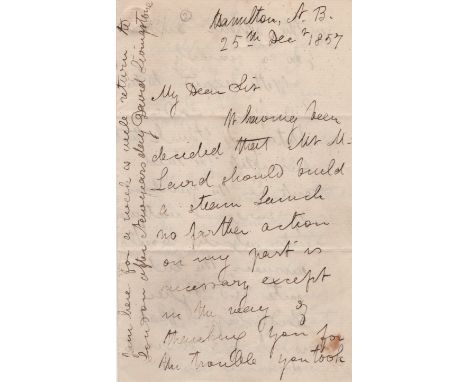 Hamilton, N. B.
25th Decr 1857
My Dear Sir
It having been
decided that Mr M-
Laird should build
a steam Launch
no farther action
on my part is
necessary except
in the way of
thanking you for
the trouble you took
I am here for a week as well return to
London after Newyears day David Livingstone